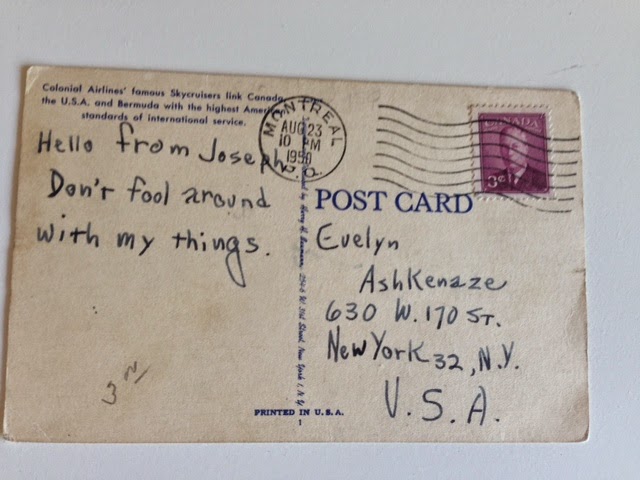 Colonial Airlines' famous Skycruisers link Canada,
the U.S.A. and Bermuda with the highest
standards of international service.
MONTREAL
AUG 23
10 M
1950
P. Q.
CANADA
3¢
Hello from Joseph.
Don't fool around
with my things.
POST CARD
Evelyn
Ashkenaze
630 W. 170 ST.
New York 32, N.Y.
U.S.A.
3
PRINTED IN U.S.A.
1